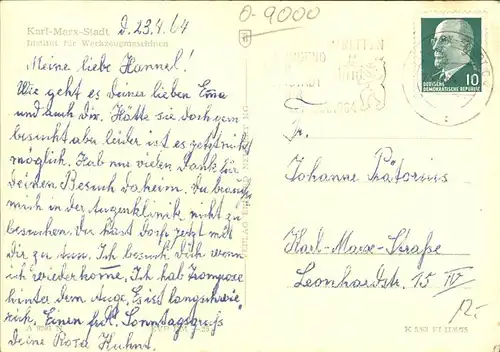 Karl-Marx-Stadt d. 23.4.64
Institut für Werkzeugmaschinen
O-9000
Meine liebe Hannel!
Wie geht es deiner lieben Oma
und auch dir. Hätte sie doch gern
besucht aber leider ist es jetzt nicht
möglich. Hab nun vielen Dank für
deinen Besuch daheim. Du brauchst
mich in der Augenklinik nicht zu
besuchen. Du hast dort jetzt mit
dir zu tun. Ich besuch dich wenn
ich wiederkome. Ich hab
hinter dem Auge. Es ist langschwie-
rich. Einen frdl. Sonntagsgruß
deine Rosa Kuhnt.
10
DEUTSCHE
DEMOKRATISCHE REPUBLIK
Fr.
Johanne Prätorius
Karl-Marx-Straße
Leonhardtstr. 15 IV